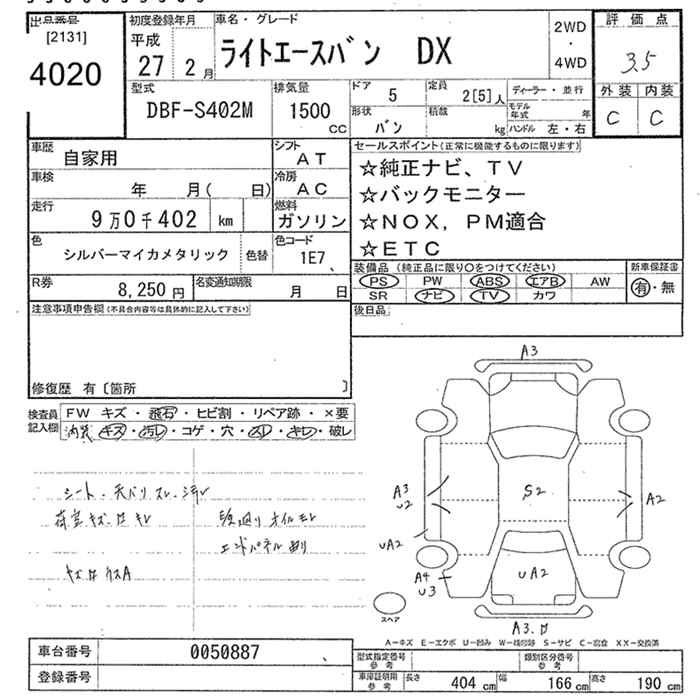 出品番号
[2131]
4020
初度登録年月
平成
27 2月
車名・グレード
ライトエースバン DX
2WD
・
4WD
評価点
3.5
外装 内装
C C
型式
DBF-S402M
排気量
1500
CC
ドア 5
定員 2[5]人
ディーラー・並行
形状 バン
積載 kg
モデル年式 年
ハンドル 左・右
車歴 自家用
シフト AT
車検 年 月( 日)
冷房 AC
走行 9万0千402 km
燃料 ガソリン
色 シルバーマイカメタリック 色替
色コード 1E7、
R券 8,250円
名変通知期限 月 日
セールスポイント(正常に機能するものに限ります)
☆純正ナビ、TV
☆バックモニター
☆NOX, PM適合
☆ETC
装備品 (純正品に限り○をつけてください)
新車保証書
PS PW ABS エアB AW
有・無
SR ナビ TV カワ
後日品
注意事項申告欄(不具合内容等は具体的に記入して下さい)
修復歴 有〔箇所 〕
検査員記入欄
FW キズ・飛石・ヒビ割・リペア跡・×要
内装 キズ・汚レ・コゲ・穴・スレ・キレ・破レ
シート・天バリ スレ・汚レ
荷室キズ・サキレ
下廻りオイルモレ
エンドパネル曲り
A3
A3
U2
S2
A2
UA2
A4
U3
UA2
スペア
A3.サ
A―キズ E―エクボ U―凹み W―補修跡 S―サビ C―腐食 XX―交換済
車台番号 0050887
登録番号
型式指定番号
参考
類別区分番号
参考
車庫証明用
参考
長さ 404 cm 幅 166 cm 高さ 190 cm